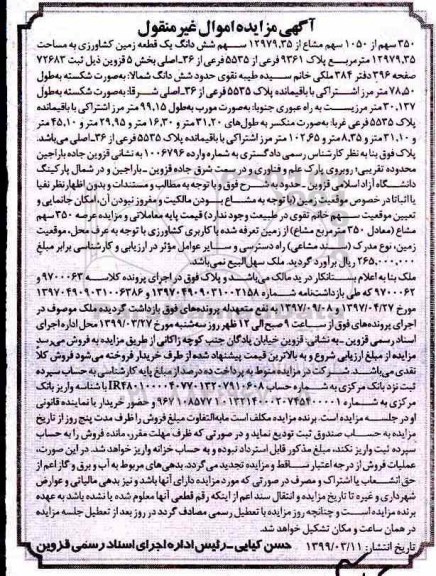 آگهی مزایده اموال غیر منقول
۳۵۰ سهم از ۱۰۵۰ سهم مشاع از ۱۲۹۷۹,۳۵ سهم شش دانگ یک قطعه زمین کشاورزی به مساحت
۱۲۹۷۹,۳۵ مترمربع پلاک ۹۳۶۱ فرعی از ۵۵۳۵ فرعی از ۳۶-اصلی بخش ۵ قزوین ذیل ثبت ۷۲۶۸۳
صفحه ۳۹۶ دفتر ۳۸۴ ملکی خانم سیده طیبه نقوی حدود شش دانگ شمالا: به‌صورت شکسته به‌طول
۷۸,۵۰ متر مرز اشتراکی با باقیمانده پلاک ۵۵۳۵ فرعی از ۳۶-اصلی شرقا: به‌صورت شکسته به‌طول
۳۰,۱۳۷ متر مرزیست به راه عبوری جنوبا: به‌صورت مورب به‌طول ۹۹,۱۵ متر مرز اشتراکی با باقیمانده
پلاک ۵۵۳۵ فرعی غربا: به‌صورت منکسر به طول‌های ۳۱,۲۰ متر و ۱۶,۳۰ متر و ۲۹,۹۵ متر و ۴۵,۱۰ متر
و ۳۱,۱۰ متر و ۸,۳۵ متر و ۱۰۲,۶۵ متر مرز اشتراکی با باقیمانده پلاک ۵۵۳۵ فرعی از ۳۶-اصلی می‌باشد.
پلاک فوق بنا به نظر کارشناس رسمی دادگستری به شماره وارده ۱۰۰۶۷۹۶ به نشانی قزوین جاده باراجین
محدوده تقریبی: روبروی پارک علم و فناوری و در سمت شرق جاده قزوین - باراجین و در شمال پارکینگ
دانشگاه آزاد اسلامی قزوین - حدودا به شرح فوق و با توجه به مطالب و مستندات و بدون اظهار نظر نفیا
یا اثباتا در خصوص موقعیت زمین (با توجه به مشاع بودن مالکیت و مفروز نبودن آن، امکان جانمایی و
تعیین موقعیت سهم خانم نقوی در طبیعت وجود ندارد) قیمت پایه معاملاتی و مزایده عرصه ۳۵۰ سهم
مشاع (معادل ۳۵۰ مترمربع مشاع) از زمین تعرفه شده با کاربری کشاورزی با توجه به عرف محل، موقعیت
زمین، نوع مدرک (سند مشاعی) راه دسترسی و سایر عوامل مؤثر در ارزیابی و کارشناسی برابر مبلغ
۲۶۵,۰۰۰,۰۰۰ ریال برآورد گردید. ملک سهل‌البیع نمی‌باشد
ملک بنا به اعلام بستانکار در ید مالک می‌باشد و پلاک فوق در اجرای پرونده کلاسه ۹۷۰۰۰۶۳ و
۹۷۰۰۰۶۲ که طی بازداشت‌نامه شماره ۱۳۹۷۰۴۹۰۹۰۳۱۰۰۲۱۵۸ و ۱۳۹۷۰۴۹۰۹۰۳۱۰۰۶۳۸۶
مورخ ۱۳۹۷/۰۴/۲۷ و ۱۳۹۷/۰۹/۰۸ به نفع متعهدله پرونده‌های فوق بازداشت گردیده ملک موصوف در
اجرای پرونده‌های فوق از ساعت ۹ صبح الی ۱۲ ظهر روز سه‌شنبه مورخ ۱۳۹۹/۰۳/۲۷ محل اداره اجرای
اسناد رسمی قزوین - به نشانی: قزوین خیابان پادگان جنب کوچه زاکانی از طریق مزایده به فروش می‌رسد
مزایده از مبلغ ارزیابی شروع و به بالاترین قیمت پیشنهاد شده از طرف خریدار فروخته می‌شود فروش کلا
نقدی می‌باشد. شرکت در مزایده منوط به پرداخت ده درصد از مبلغ پایه کارشناسی به حساب سپرده
ثبت نزد بانک مرکزی به شماره حساب IR۴۸۰۱۰۰۰۰۴۰۷۷۰۱۳۲۰۷۹۱۰۶۰۸ با شناسه واریز بانک
مرکزی به شماره ۹۶۷۱۰۸۵۷۷۱۰۱۳۲۱۴۰۰۲۰۷۴۵۴۰۰۰۰۱ و حضور خریدار یا نماینده قانونی
او در جلسه مزایده است. برنده مزایده مکلف است مابه‌التفاوت مبلغ فروش را ظرف مدت پنج روز از تاریخ
مزایده به حساب صندوق ثبت تودیع نماید و در صورتی که ظرف مهلت مقرر، مانده فروش را به حساب
سپرده ثبت واریز نکند، مبلغ مذکور قابل استرداد نبوده و به حساب خزانه واریز خواهد شد. در این صورت،
عملیات فروش از درجه اعتبار ساقط و مزایده تجدید می‌گردد. بدهی‌های مربوط به آب و برق و گاز اعم از
حق انشعاب یا اشتراک و مصرف در صورتی که مورد مزایده دارای آنها باشد و نیز بدهی مالیاتی و عوارض
شهرداری و غیره تا تاریخ مزایده و انتقال سند اعم از اینکه رقم قطعی آنها معلوم شده یا نشده باشد به عهده
برنده مزایده است و چنانچه روز مزایده با تعطیل رسمی مصادف گردد در روز بعد از تعطیل جلسه مزایده
در همان ساعت و مکان تشکیل خواهد شد.
تاریخ انتشار: ۱۳۹۹/۰۳/۱۱ حسن کیایی - رئیس اداره اجرای اسناد رسمی قزوین